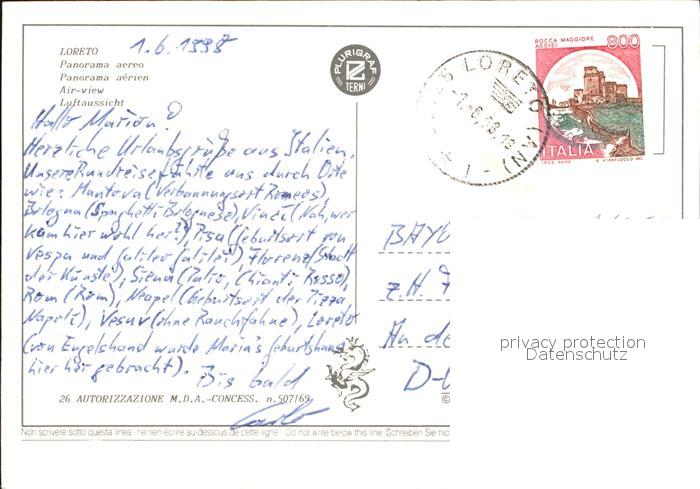 LORETO 1.6.1998
Panorama aereo
Panorama aérien
Air-view
Luftaussicht
PLURIGRAF
TERNI
LORETO (AN)
1.6.98
ROCCA MAGGIORE
ASSISI
800
ITALIA
Hallo Marion!
Herzliche Urlaubsgrüße aus Italien.
Unsere Rundreise führte uns durch Orte
wie: Mantova (Verbannungsort Romeos),
Bologna (Spaghetti Bolognese), Vinci (Nah, wer
kam hier wohl her?), Pisa (Geburtsort von
Vespa und Galileo Galilei), Florenz (Stadt
der Künste), Siena (Palio, Chianti Rosso),
Rom (Rom), Neapel (Geburtsort der Pizza
Napoli), Vesuv (ohne Rauchfahne), Loreto
(von Engelshand wurde Maria's Geburtshaus
hier her gebracht). Bis bald
BAYE
z.H. F
An de
D-
privacy protection
Datenschutz
26 AUTORIZZAZIONE M.D.A.-CONCESS. n.507/69
©
Non scrivere sotto questa linea - ne rien écrire au-dessous de cette ligne Do not write below this line Schreiben Sie nic